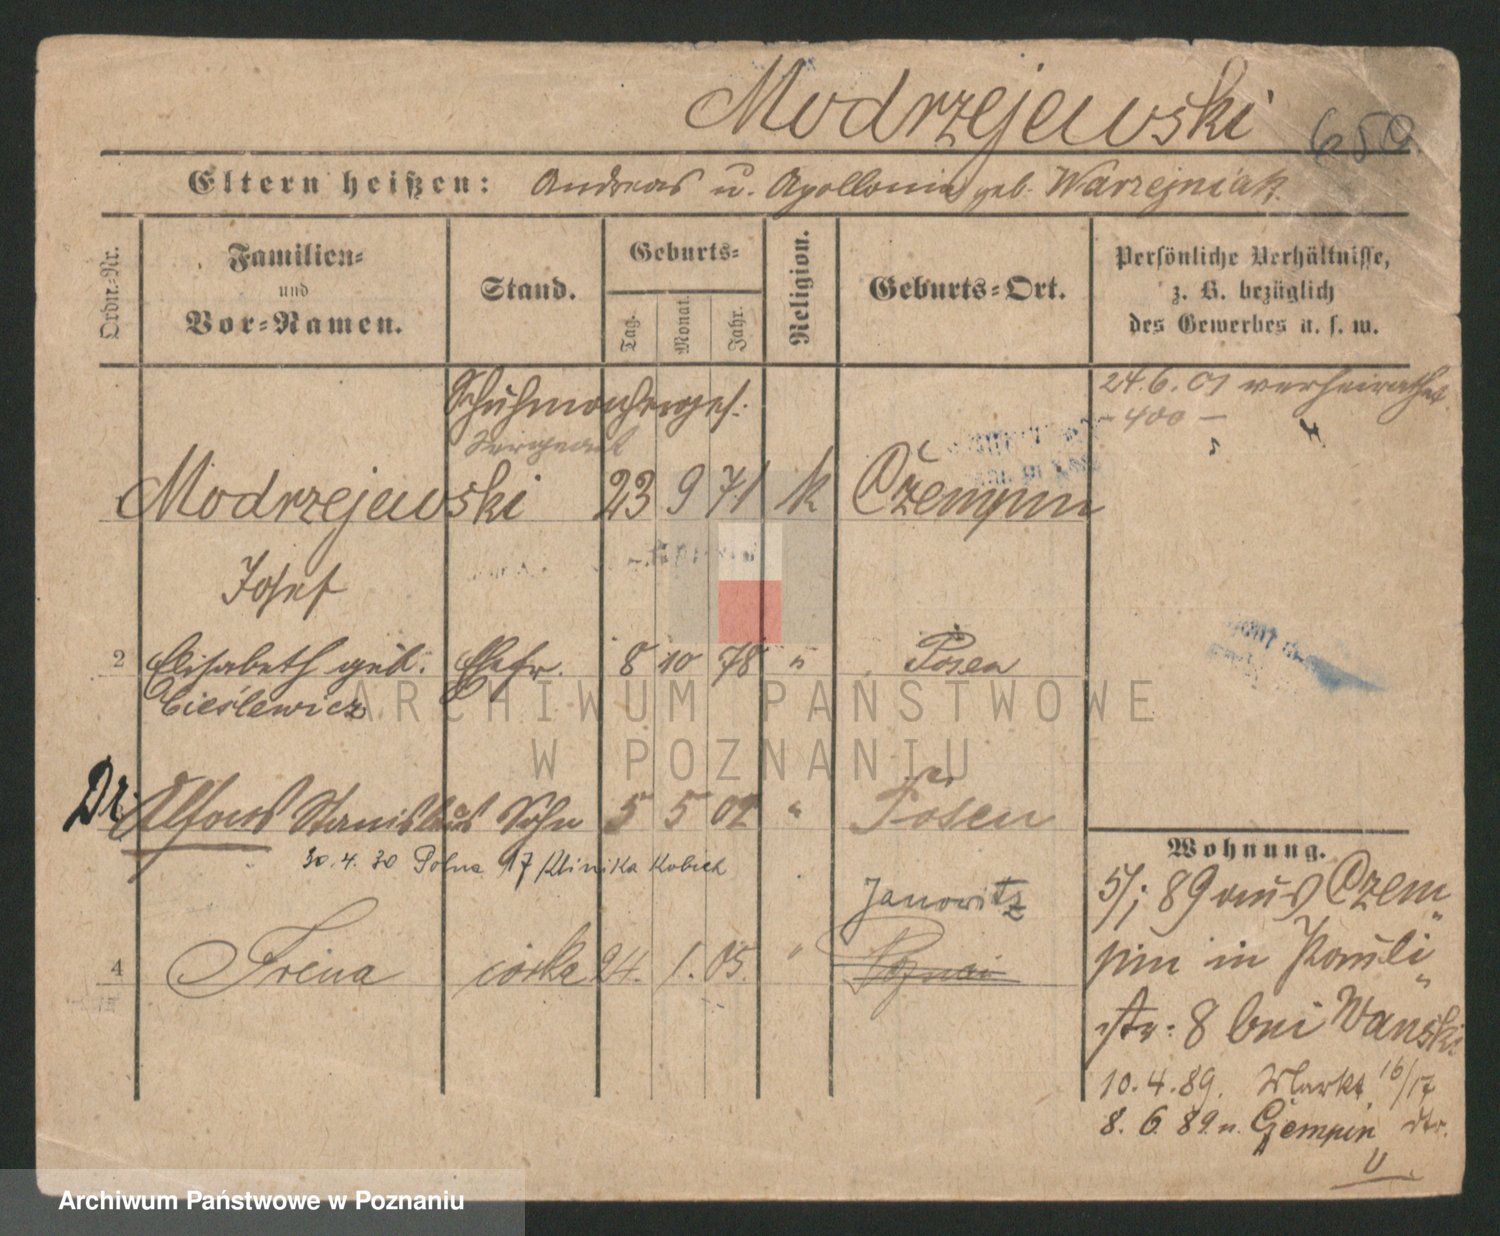 Modrzejewski 659.
Eltern heißen: Andreas u. Apollonia geb. Warzejniak.
Ordn.-Nr.
Familien-
und
Vor-Namen.
Stand.
Geburts-
Tag.
Monat.
Jahr.
Religion.
Geburts-Ort.
Persönliche Verhältnisse,
z. B. bezüglich
des Gewerbes u. s. w.
24.6.01 verheirathet
- 400 -
Schuhmacherges.
Sergeant
Modrzejewski 23 9 71 k Czempin
Josef
2 Elisabeth geb. Ehefr. 8 10 78 " Posen
Cieślewicz
Dr. Alfons Stanislaus Sohn 5 5 02 " Posen
30.4.30 Polna 17 Klinika Kobiet
Janowitz
4 Irena córka 24. 1. 05. " Poznań
Wohnung.
5/1 89 aus Czem
pin in Pauli
str. 8 bei Wanski
10.4.89. Markt 16/17
8. 6. 89 n. Czempin
ARCHIWUM PAŃSTWOWE
W POZNANIU
Archiwum Państwowe w Poznaniu